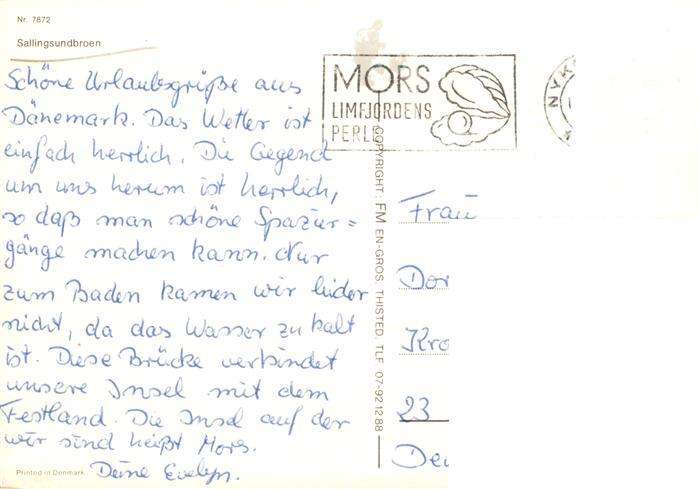 Nr. 7872
Sallingsundbroen
Schöne Urlaubsgrüße aus
Dänemark. Das Wetter ist
einfach herrlich. Die Gegend
um uns herum ist herrlich,
so daß man schöne Spazier=
gänge machen kann. Nur
zum Baden kamen wir leider
nicht, da das Wasser zu kalt
ist. Diese Brücke verbindet
unsere Insel mit dem
Festland. Die Insel auf der
wir sind heißt Mors.
Deine Evelyn.
Printed in Denmark
MORS
LIMFJORDENS
PERLE
NYK
COPYRIGHT: FM EN-GROS THISTED. TLF. 07-92 12 88
Frau
Dor
Kro
23
Den